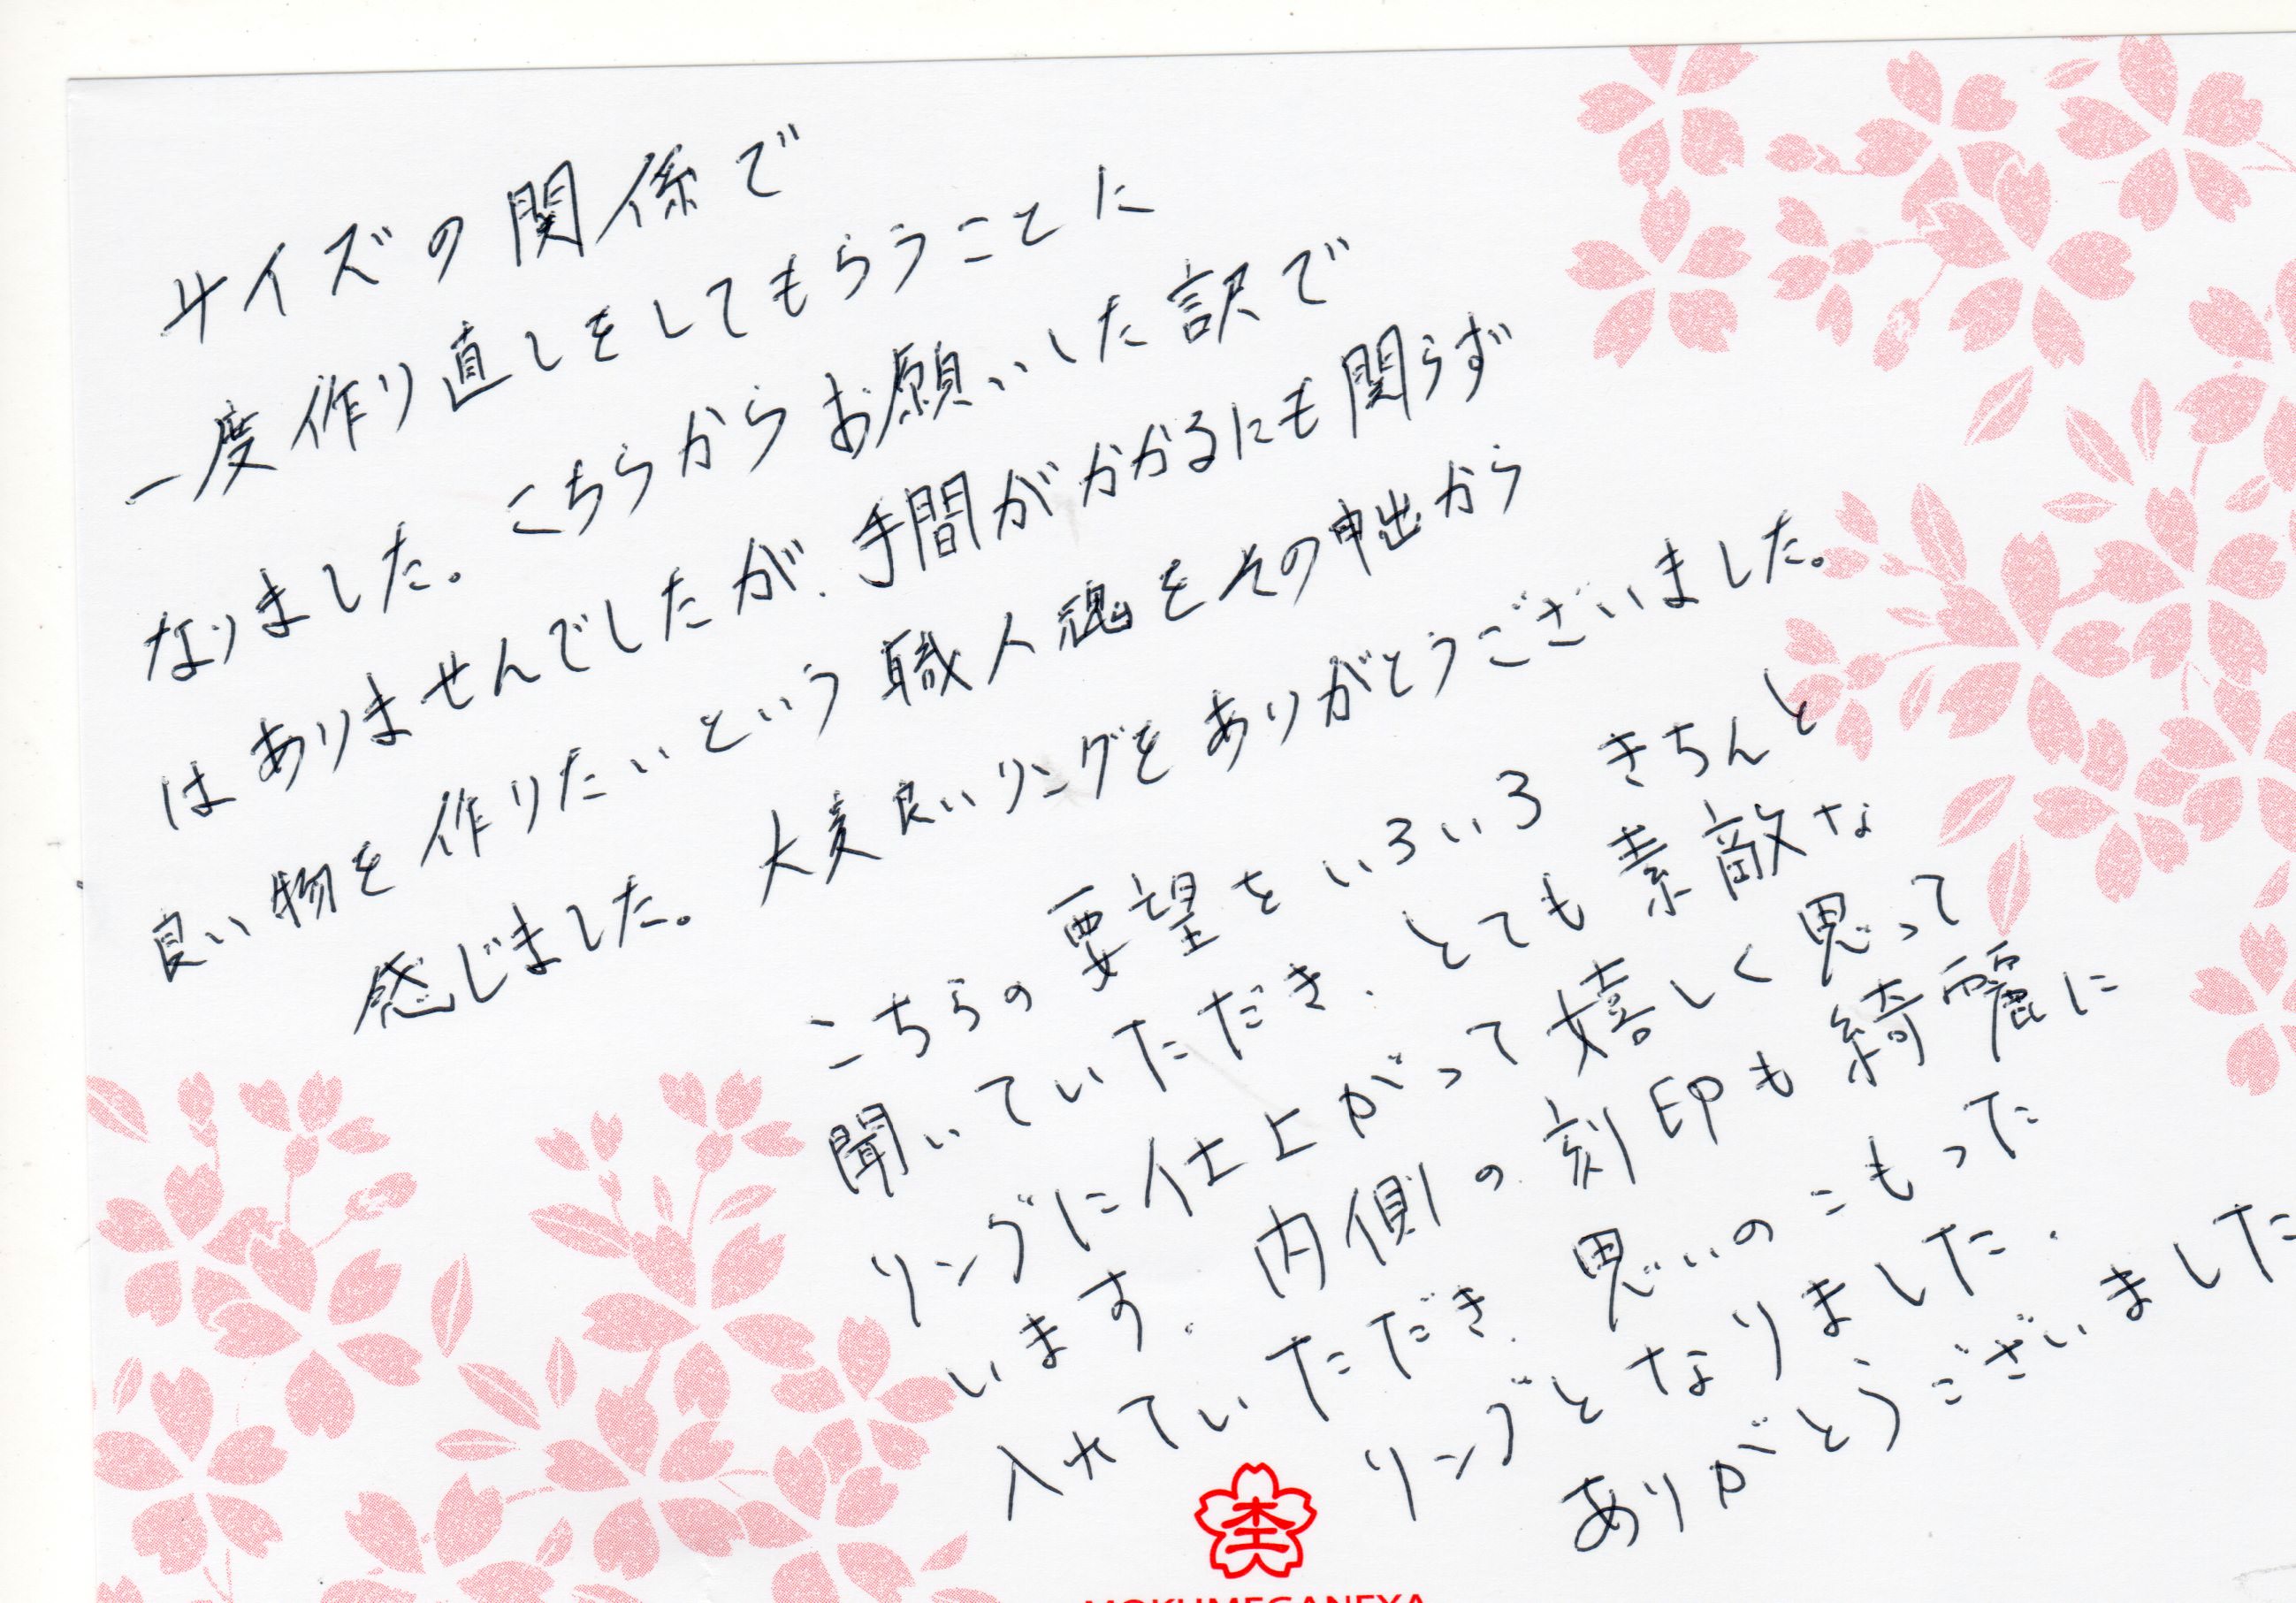 サイズの関係で
一度作り直しをしてもらうことに
なりました。こちらからお願いした訳で
はありませんでしたが、手間がかかるにも関らず
良い物を作りたいという職人魂をその申出から
感じました。大変良いリングをありがとうございました。
こちらの要望をいろいろきちんと
聞いていただき、とても素敵な
リングに仕上がって嬉しく思って
います。内側の刻印も綺麗に
入れていただき、思いのこもった
リングとなりました。
ありがとうございました
杢
MOKUMEGANEYA